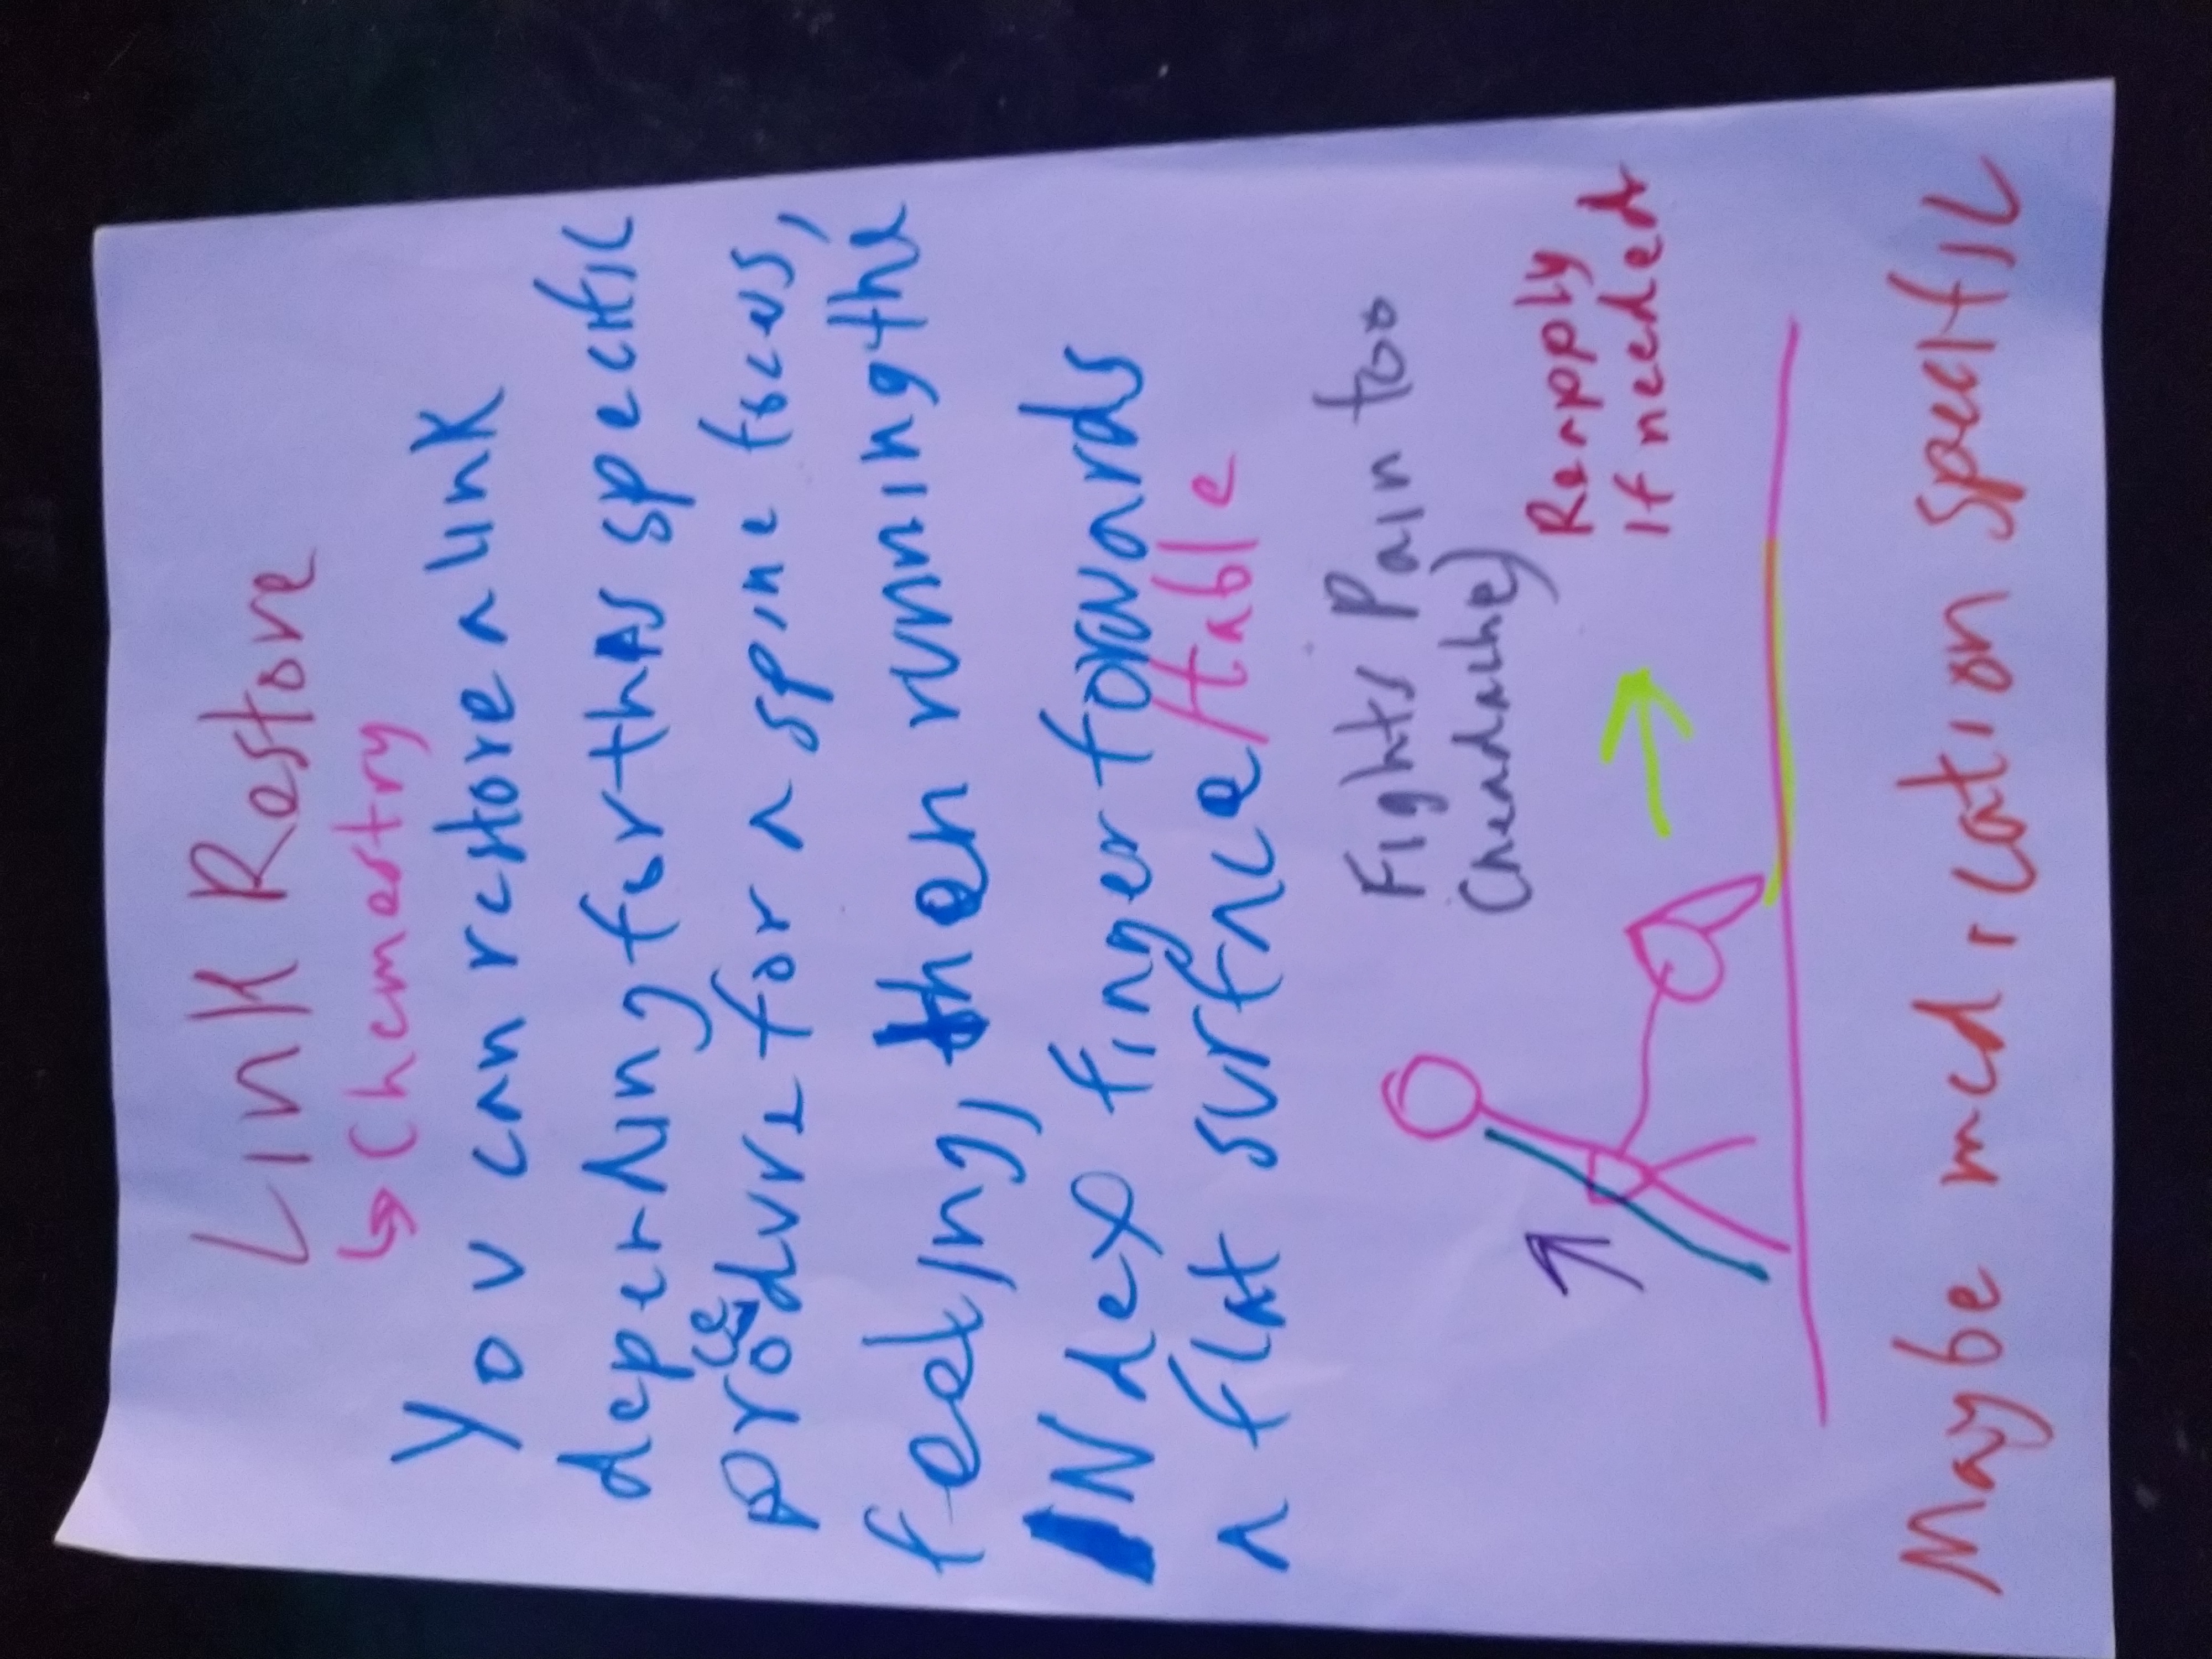 Link Restore
↳ Chemestry
You can restore a link
deperNing for thAs specific
produkt for a spine focus,
feeling, then running the
INdex finger forwards
a flat surface/table
Fights Pain too
(headache)
Reapply
if needed
Maybe medication specific